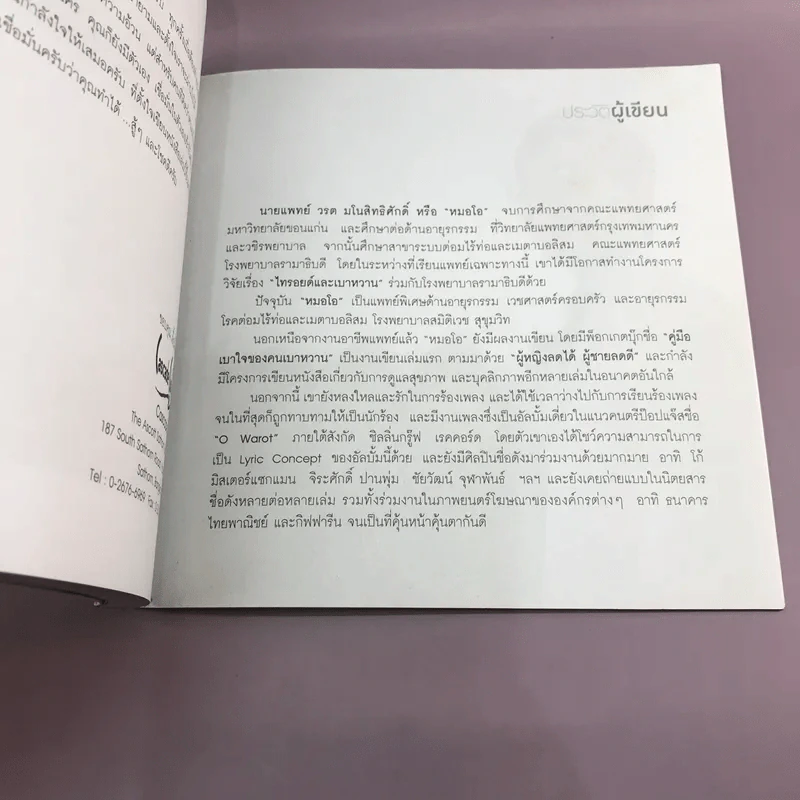 กำลังใจให้เสมอครับ
เชื่อมั่นครับว่าคุณทำได้ ...สู้ๆ และโชคดีครับ
The Ascott
187 South Sathorn
Tel : 0-2676-6969
ประวัติผู้เขียน
นายแพทย์ วรต มโนสิทธิศักดิ์ หรือ "หมอโอ" จบการศึกษาจากคณะแพทยศาสตร์
มหาวิทยาลัยขอนแก่น และศึกษาต่อด้านอายุรกรรม ที่วิทยาลัยแพทยศาสตร์กรุงเทพมหานคร
และวชิรพยาบาล จากนั้นศึกษาสาขาระบบต่อมไร้ท่อและเมตาบอลิสม คณะแพทยศาสตร์
โรงพยาบาลรามาธิบดี โดยในระหว่างที่เรียนแพทย์เฉพาะทางนี้ เขาได้มีโอกาสทำงานโครงการ
วิจัยเรื่อง "ไทรอยด์และเบาหวาน" ร่วมกับโรงพยาบาลรามาธิบดีด้วย
ปัจจุบัน "หมอโอ" เป็นแพทย์พิเศษด้านอายุรกรรม เวชศาสตร์ครอบครัว และอายุรกรรม
โรคต่อมไร้ท่อและเมตาบอลิสม โรงพยาบาลสมิติเวช สุขุมวิท
นอกเหนือจากงานอาชีพแพทย์แล้ว "หมอโอ" ยังมีผลงานเขียน โดยมีพ็อกเกตบุ๊กชื่อ "คู่มือ
เบาใจของคนเบาหวาน" เป็นงานเขียนเล่มแรก ตามมาด้วย "ผู้หญิงลดได้ ผู้ชายลดดี" และกำลัง
มีโครงการเขียนหนังสือเกี่ยวกับการดูแลสุขภาพ และบุคลิกภาพอีกหลายเล่มในอนาคตอันใกล้
นอกจากนี้ เขายังหลงใหลและรักในการร้องเพลง และได้ใช้เวลาว่างไปกับการเรียนร้องเพลง
จนในที่สุดก็ถูกทาบทามให้เป็นนักร้อง และมีงานเพลงซึ่งเป็นอัลบั้มเดี่ยวในแนวดนตรีป๊อปแจ๊สชื่อ
"O Warot" ภายใต้สังกัด ชิลลิ่นกรู๊ฟ เรคคอร์ด โดยตัวเขาเองได้โชว์ความสามารถในการ
เป็น Lyric Concept ของอัลบั้มนี้ด้วย และยังมีศิลปินชื่อดังมาร่วมงานด้วยมากมาย อาทิ โก้
มิสเตอร์แซกแมน จิระศักดิ์ ปานพุ่ม ชัยวัฒน์ จุฬาพันธ์ ฯลฯ และยังเคยถ่ายแบบในนิตยสาร
ชื่อดังหลายต่อหลายเล่ม รวมทั้งร่วมงานในภาพยนตร์โฆษณาขององค์กรต่างๆ อาทิ ธนาคาร
ไทยพาณิชย์ และกิฟฟารีน จนเป็นที่คุ้นหน้าคุ้นตากันดี